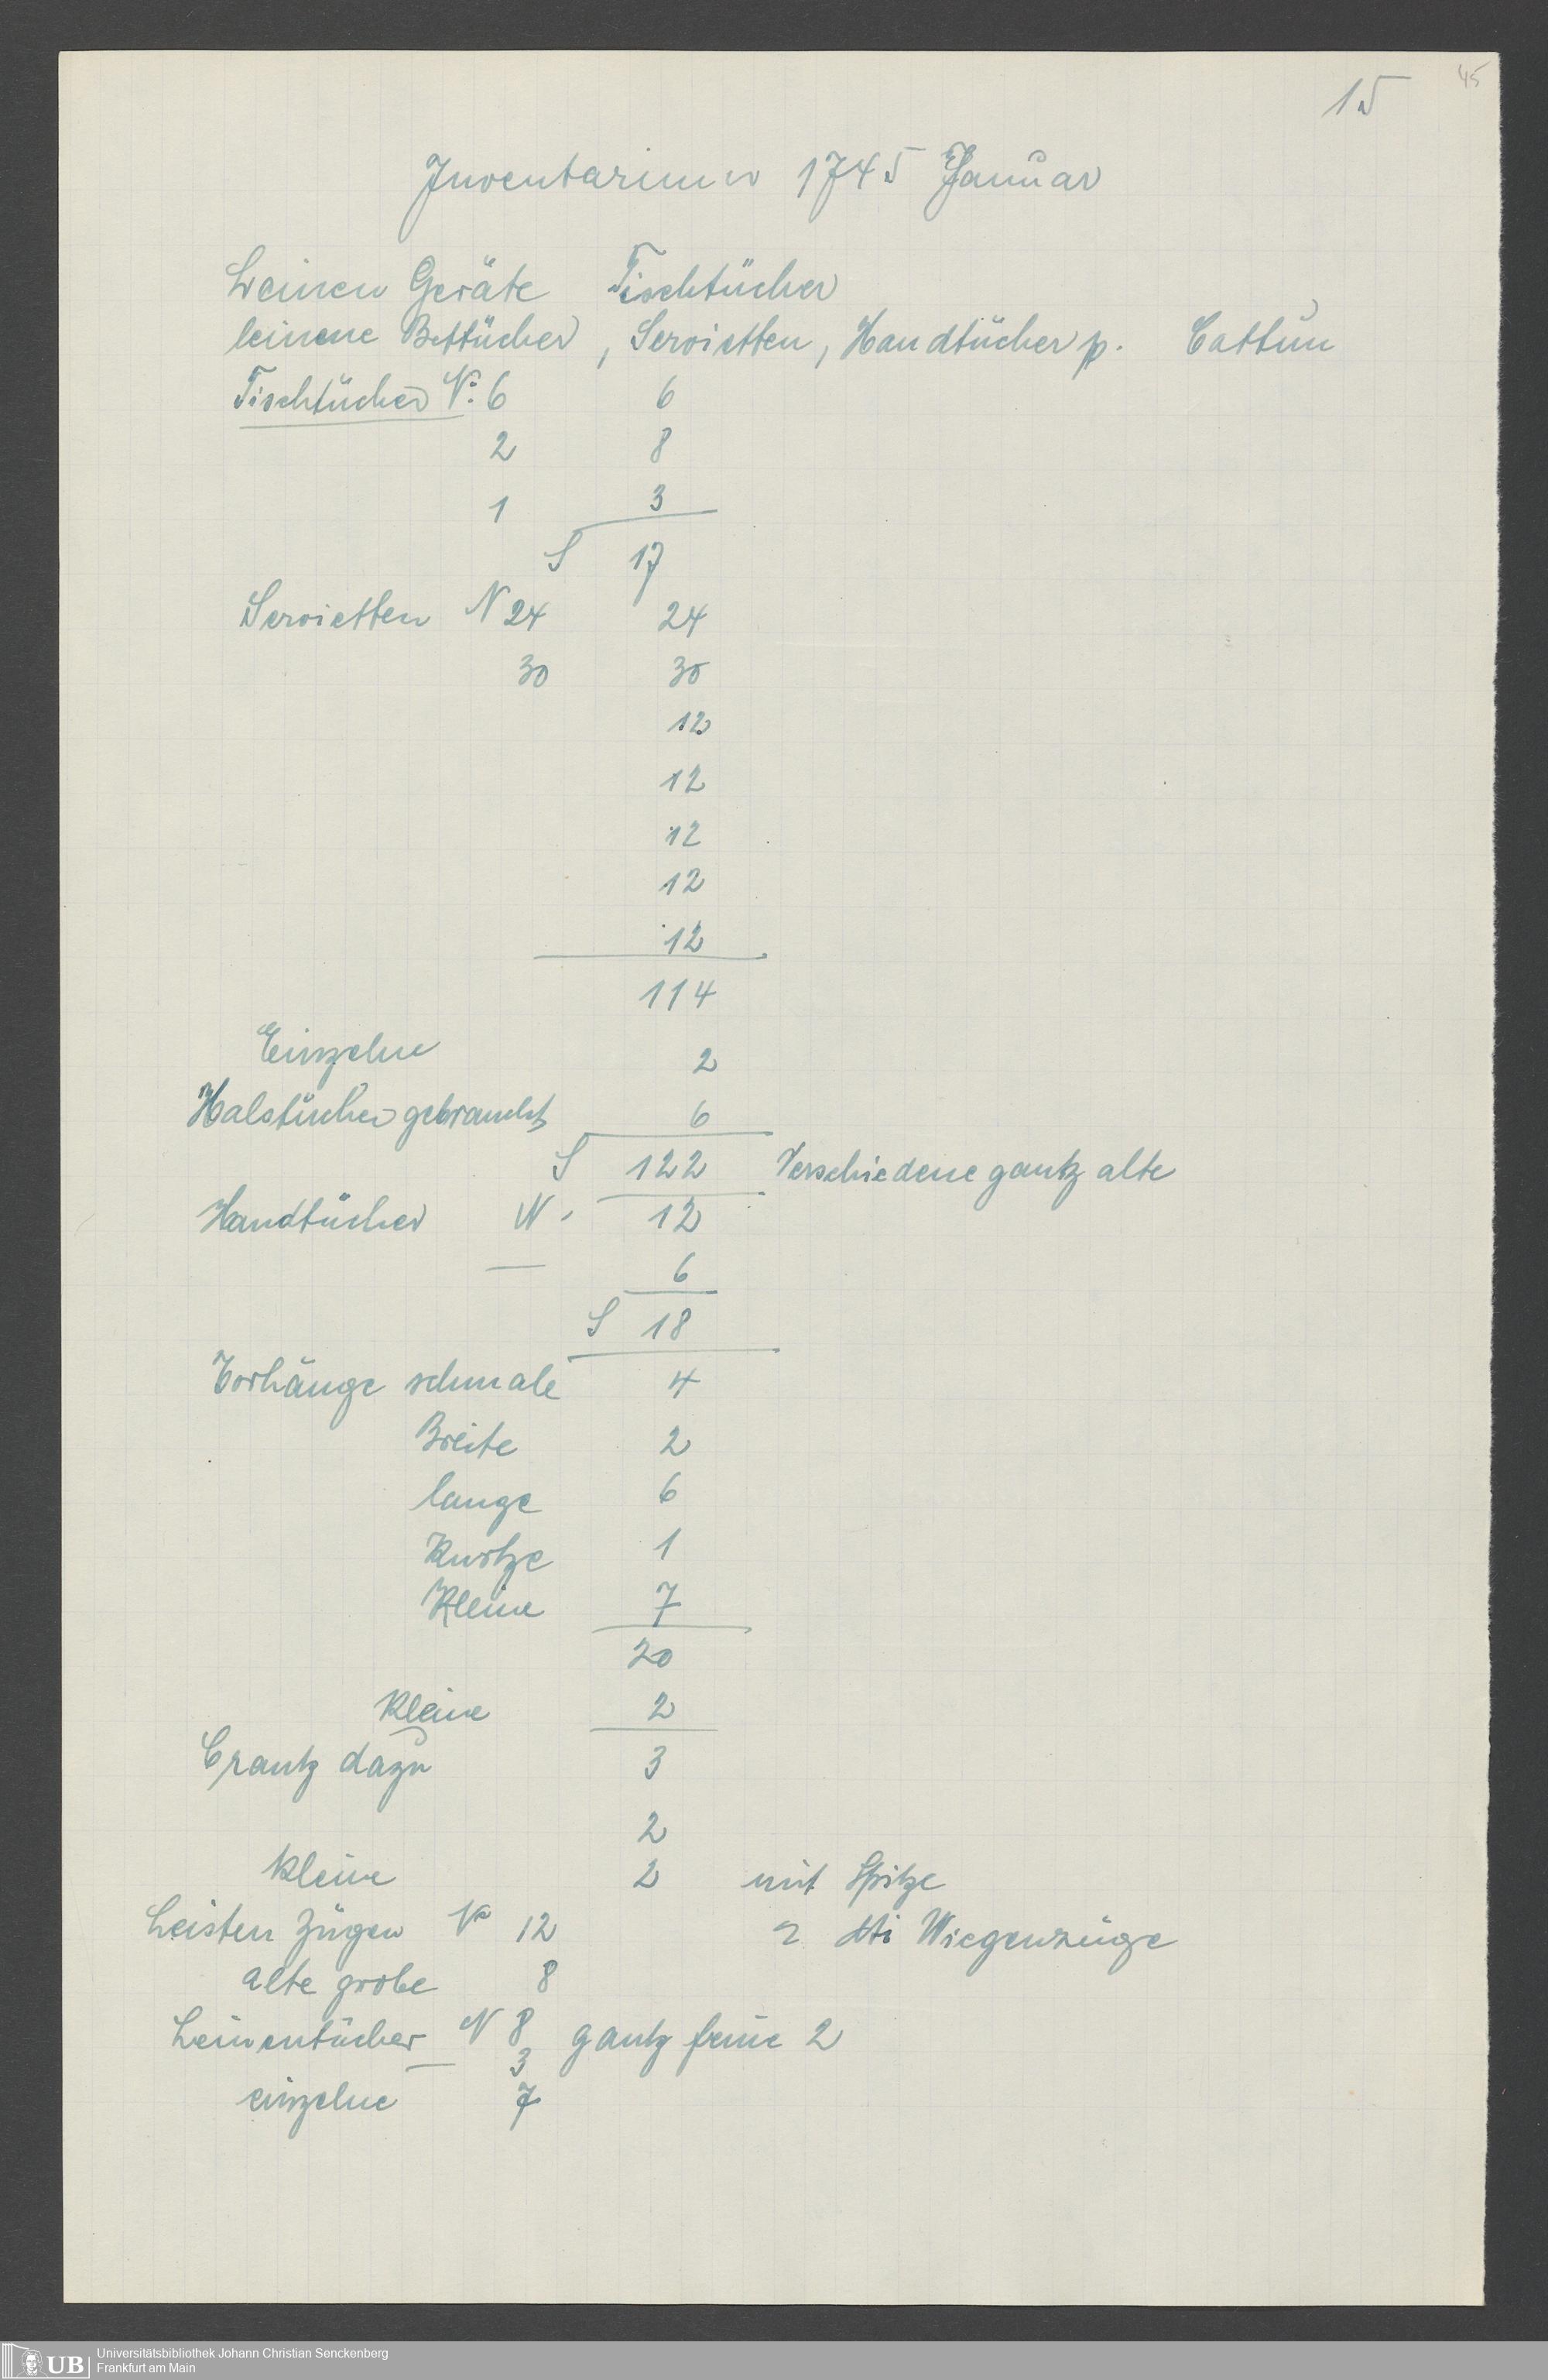 45
15
Inventarium 1745 Januar
Leinen Geräte Tischtücher
leinene Bettücher, Servietten, Handtücher p. Cattun
Tischtücher N: 6 6
2 8
1 3
S 17
Servietten N 24 24
30 30
12
12
12
12
12
114
Einzelne 2
Halstücher gebraucht 6
S 122 Verschiedene gantz alte
Handtücher N. 12
— 6
S 18
Vorhänge schmale 4
Breite 2
lange 6
Kurtze 1
Kleine 7
20
Kleine 2
Crantz dazu 3
2
Kleine 2 mit Spitze
Leisten Zügen No 12 2 dti Wiegenzüge
alte grobe 8
Leinentücher N 8 gantz feine 2
— 3
einzelne 7
UB Universitätsbibliothek Johann Christian Senckenberg
Frankfurt am Main